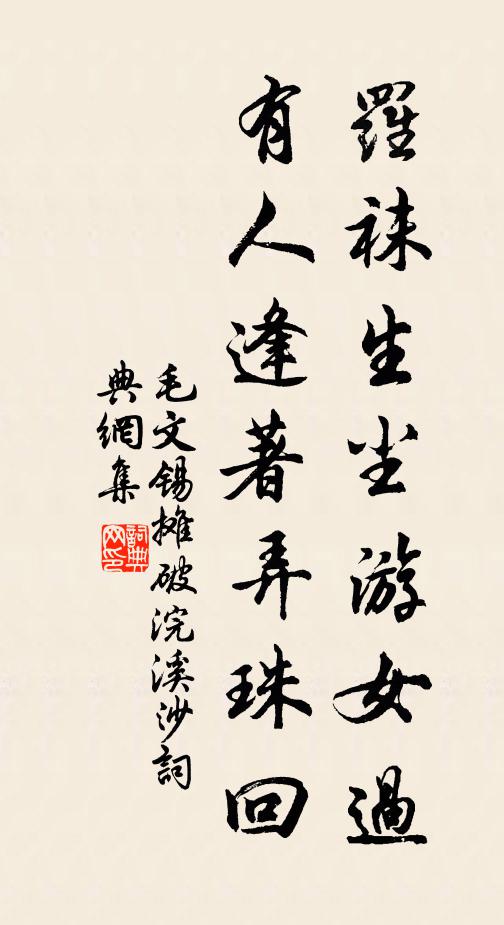 羅袜生尘游女過
有人逢著弄珠回
毛文锡摊破浣溪沙詞
典網集
詞典网印